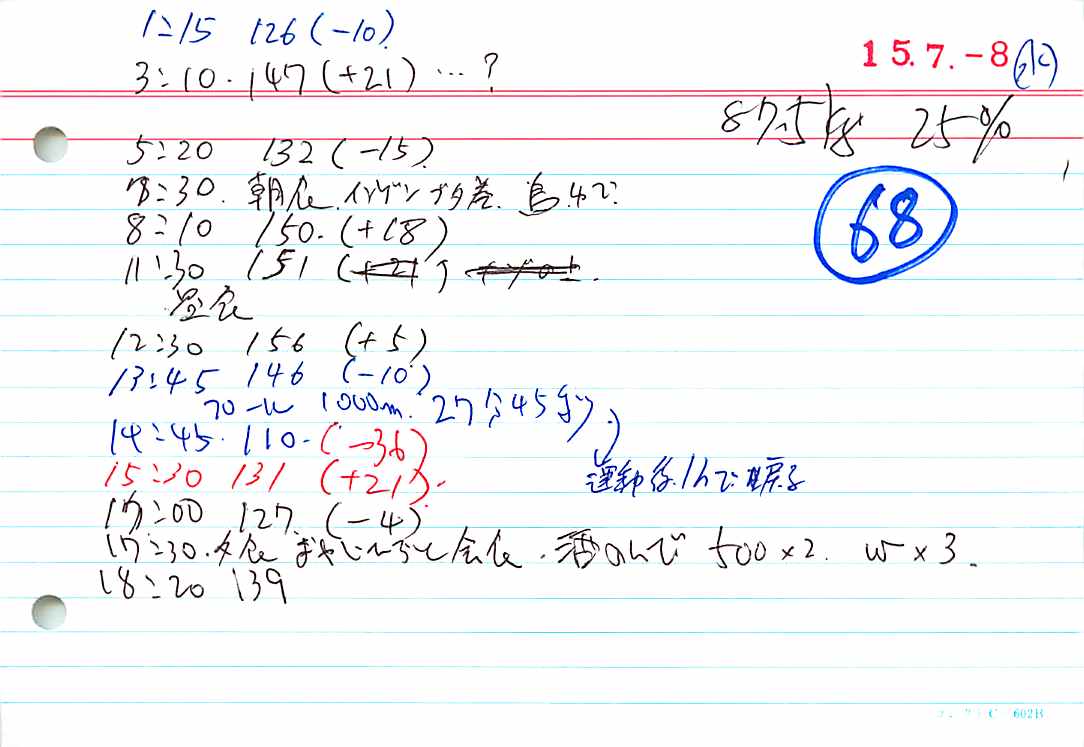 1:15 126 (-10)
3:10. 147 (+21) …?
15.7.-8 (水)
87.5kg 25%
68
5:20 132 (-15)
7:30. 朝食.
8:10 150. (+18)
11:30 151
昼食
12:30 156 (+5)
13:45 146 (-10)
プール 1000m. 27分45秒
14:45. 110. (-36)
運動後1hで
15:30 131 (+21).
17:00 127 (-4)
17:30. 夕食 と会食. 酒のんで 500×2. W×3.
18:20 139
602B